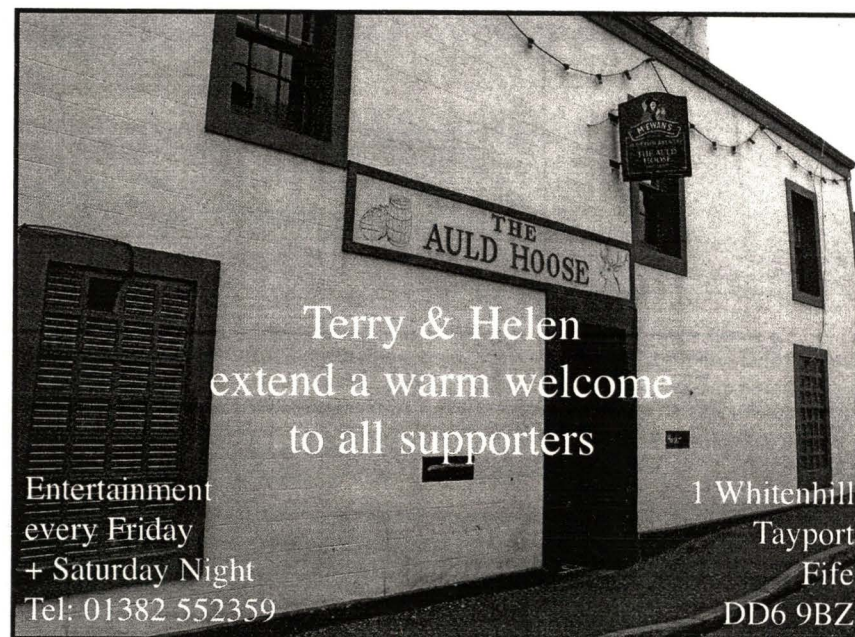 M'EWAN'S
THE AULD
HOOSE
THE
AULD HOOSE
Terry & Helen
extend a warm welcome
to all supporters
Entertainment
every Friday
+ Saturday Night
Tel: 01382 552359
1 Whitenhill
Tayport
Fife
DD6 9BZ